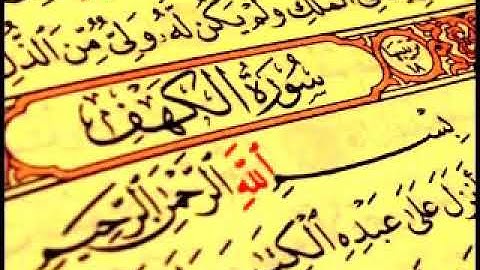 فِي ٱلْمُلْكِ وَلَمْ يَكُن لَّهُۥ وَلِيٌّ مِّنَ ٱلذُّلِّ
سُورَةُ الكَهْفِ
بِسْمِ ٱللَّهِ ٱلرَّحْمَٰنِ ٱلرَّحِيمِ
أَنزَلَ عَلَىٰ عَبْدِهِ ٱلْكِتَٰبَ